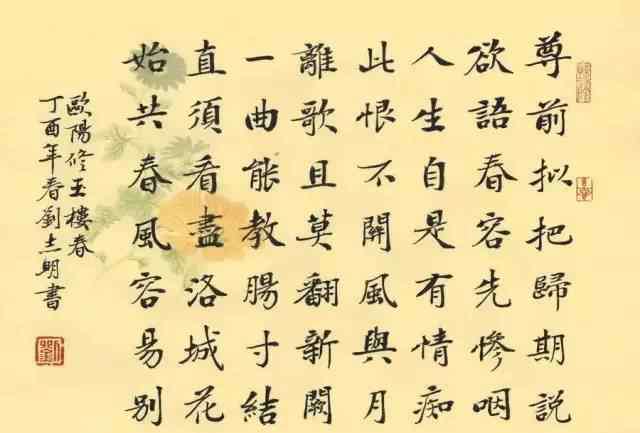 尊前拟把歸期說
欲語春容先慘咽
人生自是有情痴
此恨不関風與月
離歌且莫翻新闋
一曲能教腸寸結
直須看盡洛城花
始共春風容易別
歐陽修玉樓春
丁酉年春劉士明書